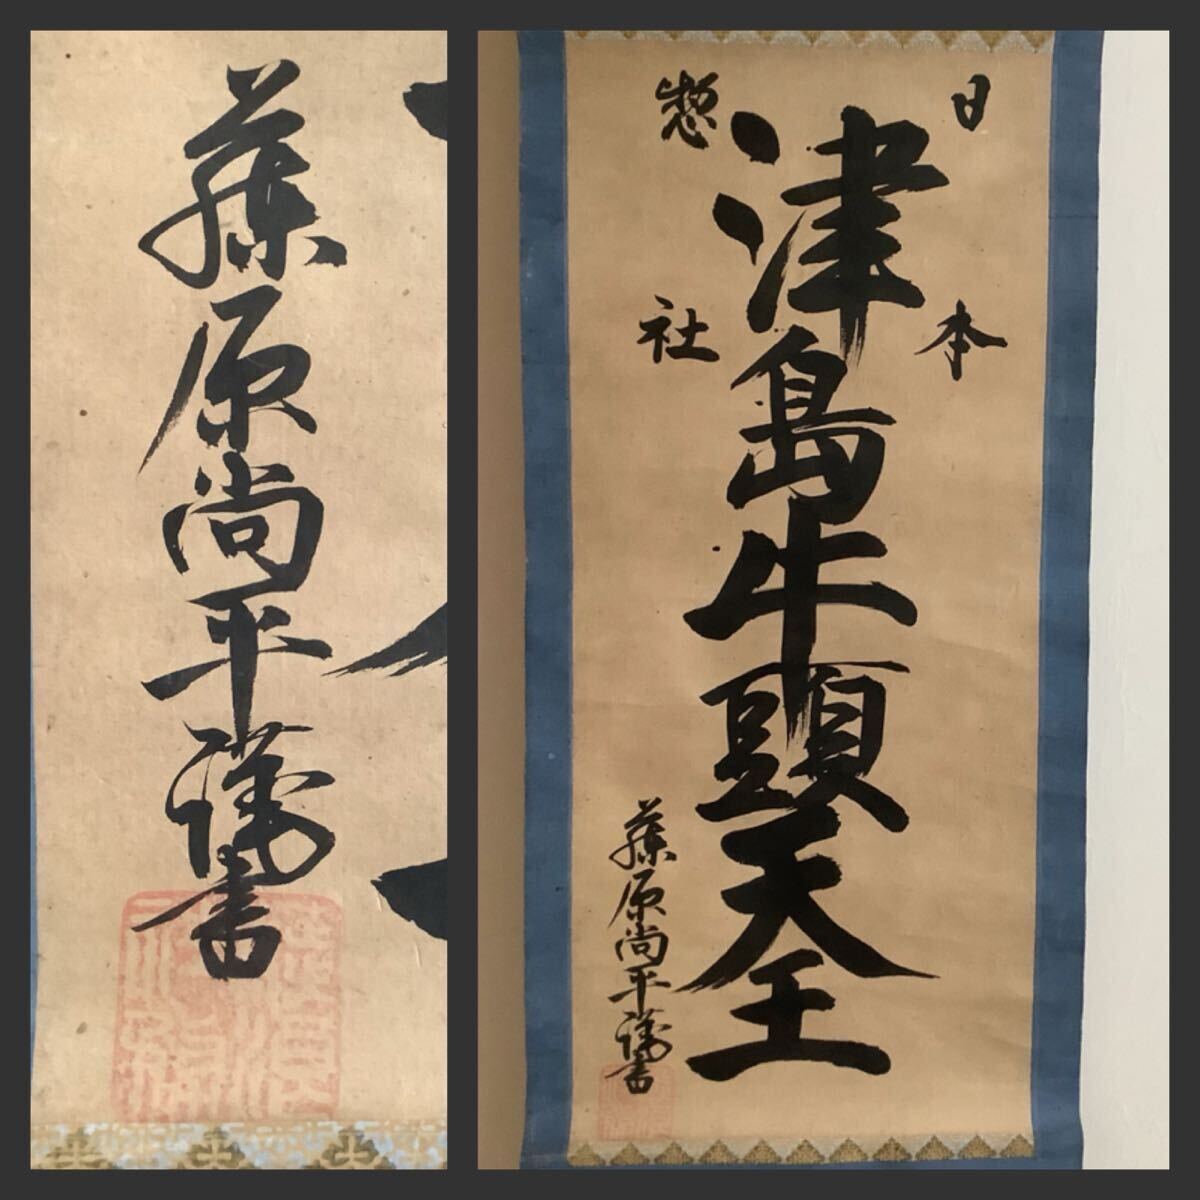 藤原尚平謹書
日本
津島牛頭天王
惣社
藤原尚平謹書